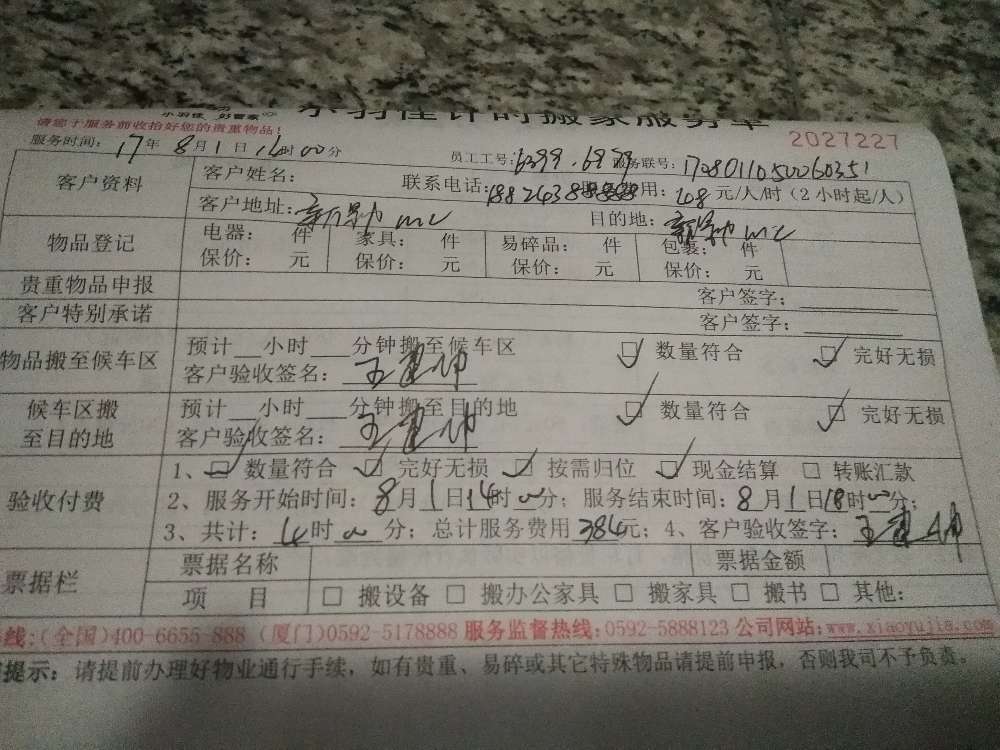 小羽佳 好管家 小羽佳计时搬家服务单
请您于服务前收拾好您的贵重物品! 2027227
服务时间: 17年8月1日14时00分 员工工号: 6399.6879 服务联号: 1708011050060351
客户资料 客户姓名: 联系电话: 费用: 48元/人/时(2小时起/人)
客户地址: 目的地:
物品登记 电器: 件 家具: 件 易碎品: 件 包裹: 件
保价: 元 保价: 元 保价: 元 保价: 元
贵重物品申报 客户签字:
客户特别承诺 客户签字:
物品搬至候车区 预计__小时___分钟搬至候车区 ☑ 数量符合 ☑ 完好无损
客户验收签名: 王建坤
候车区搬至目的地 预计__小时___分钟搬至目的地 ☑ 数量符合 ☑ 完好无损
客户验收签名: 王建坤
验收付费 1、☑ 数量符合 ☑ 完好无损 ☑ 按需归位 ☑ 现金结算 □ 转账汇款
2、服务开始时间: 8月1日14时00分; 服务结束时间: 8月1日18时00分;
3、共计: 4时00分; 总计服务费用384元; 4、客户验收签字: 王建坤
票据栏 票据名称 票据金额
项 目 □ 搬设备 □ 搬办公家具 □ 搬家具 □ 搬书 □ 其他:
线:(全国)400-6655-888 (厦门)0592-5178888 服务监督热线:0592-5888123 公司网站:www.xiaoyujia.com
提示: 请提前办理好物业通行手续,如有贵重、易碎或其它特殊物品请提前申报,否则我司不予负责。